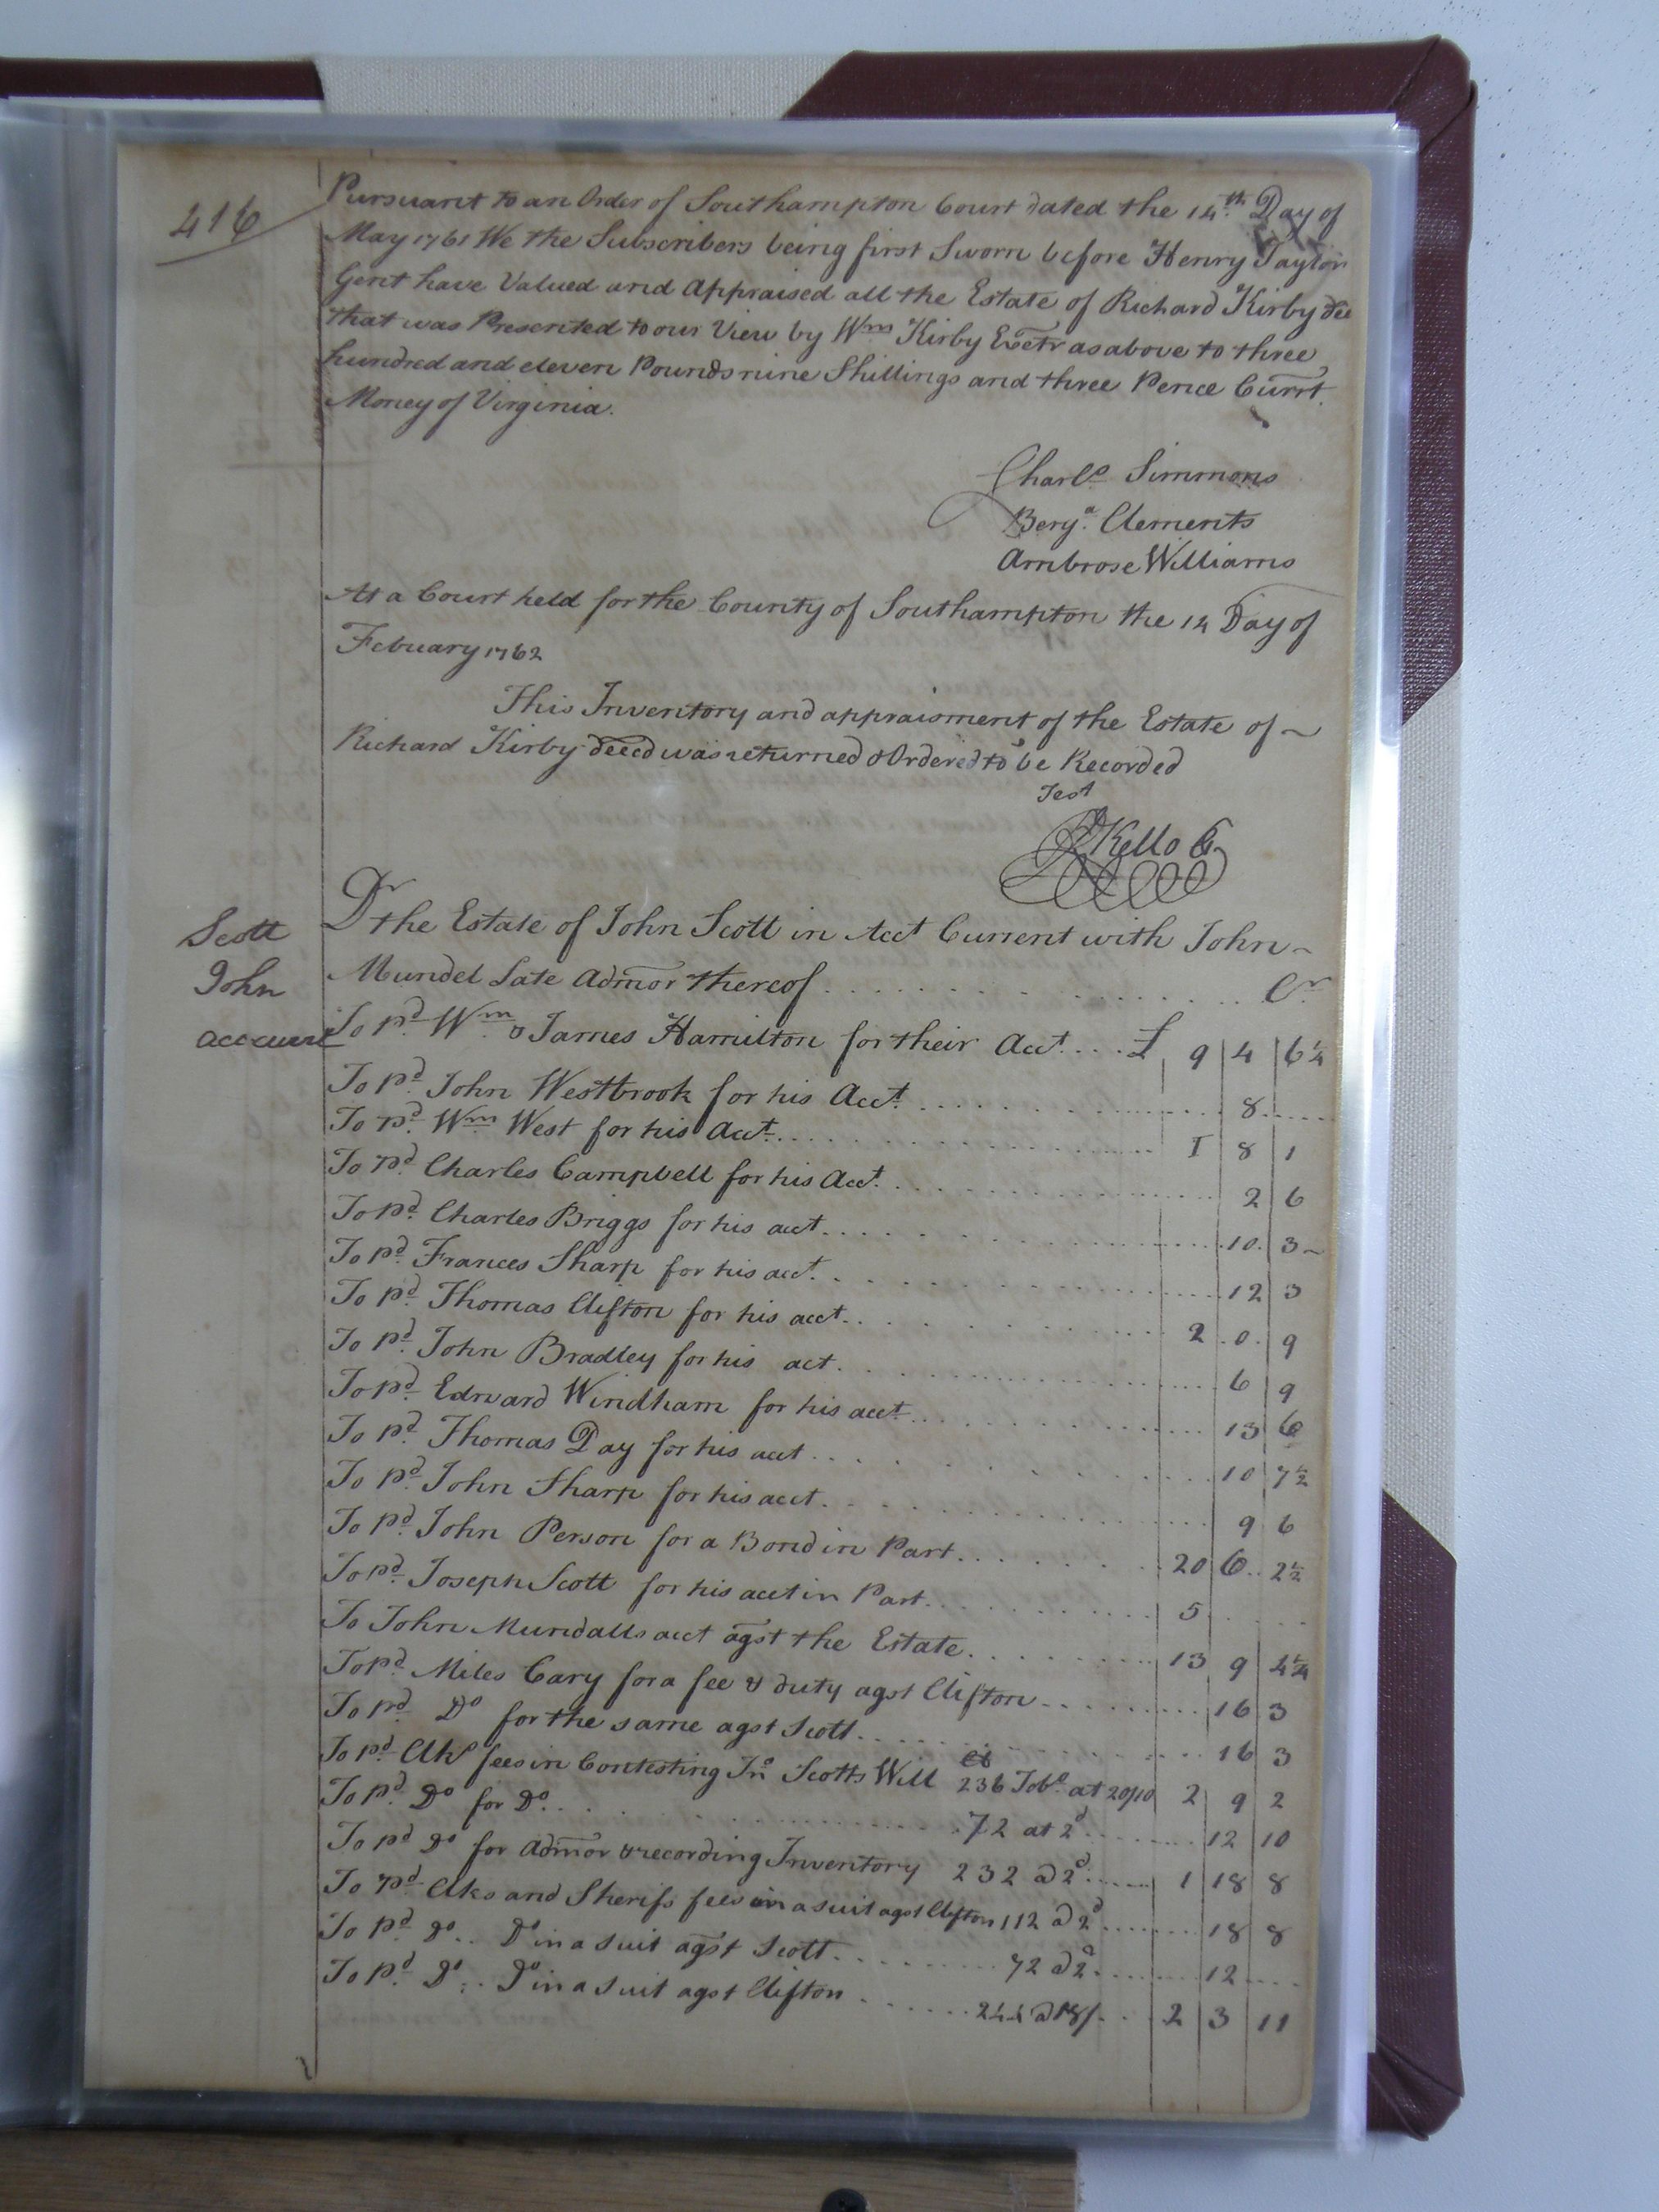 416
Pursuant to an Order of Southampton Court dated the 14th. Day of
May 1761 We the Subscribers being first Sworn before Henry Taylor
Gent have Valued and Appraised all the Estate of Richard Kirby Dec
that was Presented to our View by Wm Kirby Exetr as above to three
hundred and eleven Pounds nine Shillings and three Pence Currt.
Money of Virginia.
Charls Simmons
Benja. Clements
Ambrose Williams
At a Court held for the County of Southampton the 14 Day of
Febuary 1762
This Inventory and appraisment of the Estate of ~
Richard Kirby deced was returned & Ordered to be Recorded
Test
Kello C
Scott
John
account
Dr the Estate of John Scott in Acct Current with John ~
Mundel Late Admor thereof . . . . . . Cr
To pd. Wm & James Hamilton for their Acct. . . . £ 9 4 6¼
To pd. John Westbrook for his Acct. . . . . 8
To pd. Wm West for his Acct. . . . . 1 8 1
To pd. Charles Campbell for his Acct. . . . . 2 6
To pd. Charles Briggs for his acct. . . . . 10 3 ~
To pd. Frances Sharp for his acct. . . . . 12 3
To pd. Thomas Clifton for his acct. . . . . 2 0 9
To pd. John Bradley for his act. . . . . 6 9
To pd. Edward Windham for his acct. . . . . 13 6
To pd. Thomas Day for his acct . . . . 10 7½
To pd. John Sharp for his acct. . . . . 9 6
To pd. John Person for a Bond in Part. . . . . 20 6 2½
To pd. Joseph Scott for his acct in Part. . . . . 5
To John Mundalls acct agst the Estate. . . . . 13 9 4¼
To pd. Miles Cary for a fee & duty agst Clifton . . . . 16 3
To pd. Do for the same agst Scott. . . . . 16 3
To pd. Clks fees in Contesting Jno Scotts Will 236 Tobo at 20/10 2 9 2
To pd. Do for Do. . . . . 72 at 2d. . . . 12 10
To pd Do for Admor & recording Inventory 232 @ 2d. . . . 1 18 8
To pd. Clks and Sherifs fees in a suit agst Clifton 112 @ 2d . . . . 18 8
To pd. Do . . Do in a Suit agst Scott. . . . . 72 @ 2d. . . . 12
To pd. Do . . Do in a Suit agst Clifton . . . . 244 @ 18/. . . 2 3 11